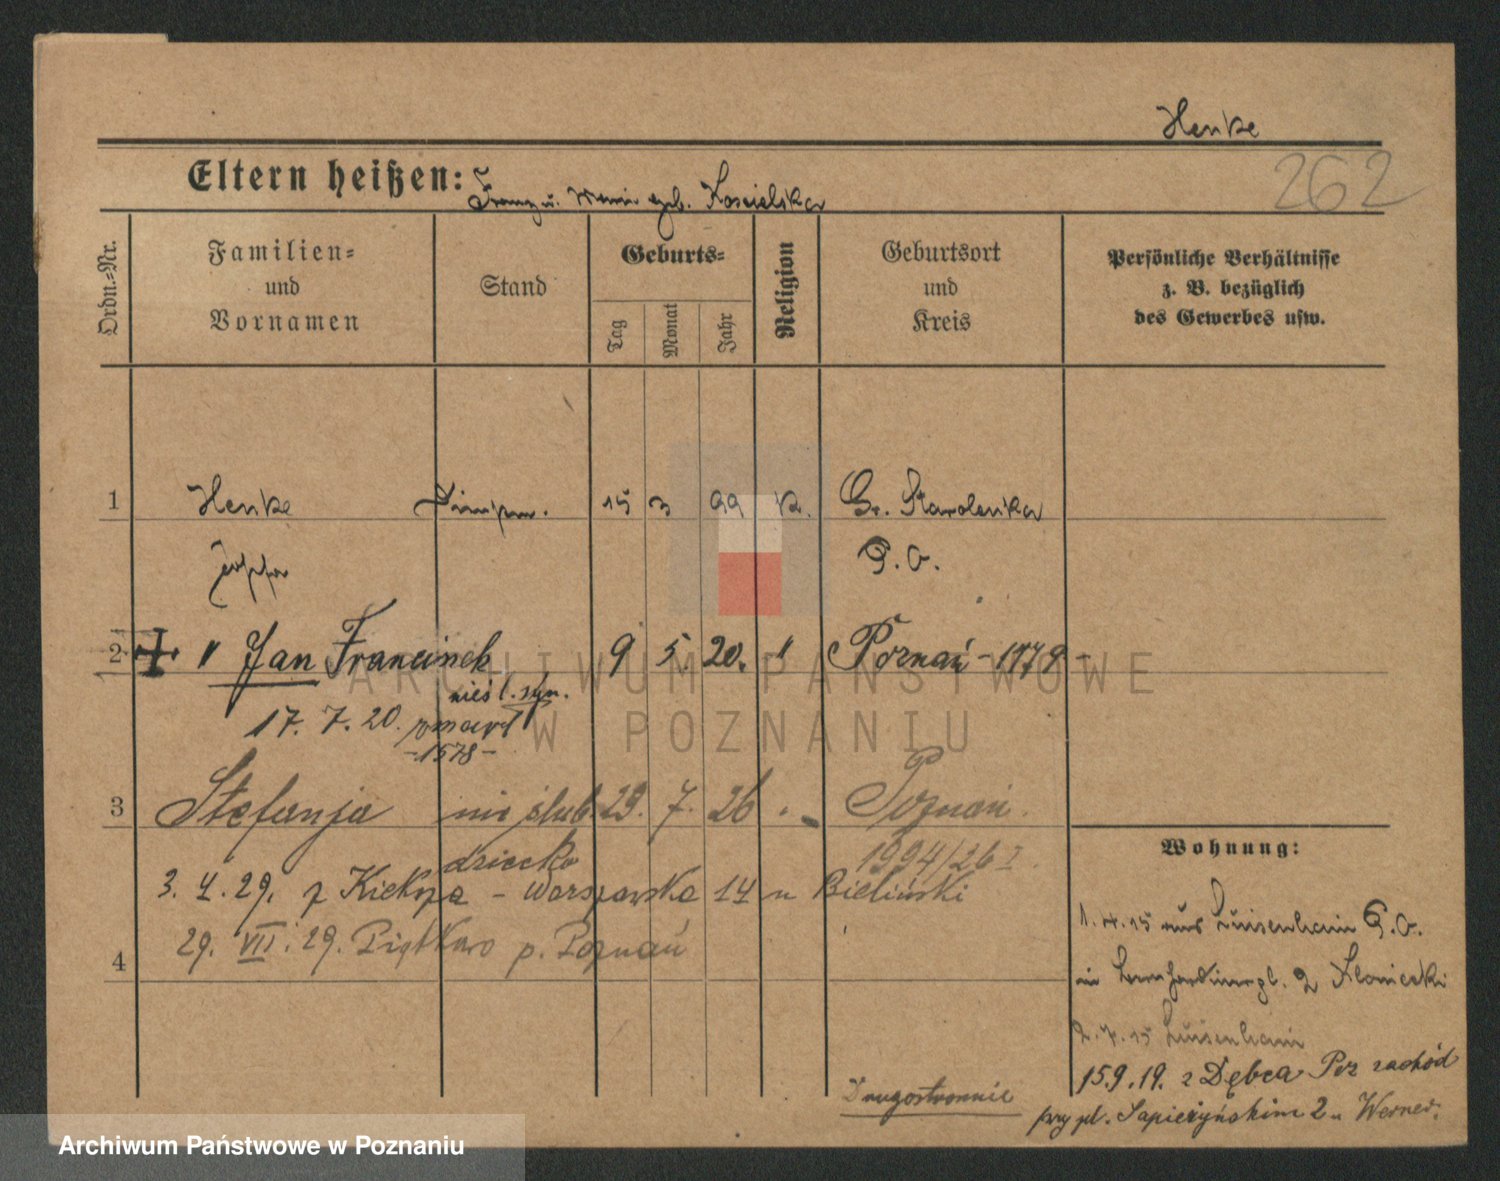 Henke
262
Eltern heißen: Franz u. Maria geb. Koscielska
Ordn.-Nr.
Familien-
und
Vornamen
Stand
Geburts-
Tag
Monat
Jahr
Religion
Geburtsort
und
Kreis
Persönliche Verhältnisse
z. B. bezüglich
des Gewerbes usw.
1 Henke 15 3 99 k. Gr. Starolenka
P. O.
2 " Jan Franciszek 9 5 20. " Poznań - 1779 -
nieśl. syn.
17. 7. 20. zmarł
-1578-
3 Stefanja nie ślub. 29. 7. 26 Poznań.
dziecko 1994/26 I.
3. 4. 29. z Kiekrza - Warszawska 14 u Bieliński
29. VII. 29. Piątkowo p. Poznań
4
Wohnung:
1.4.15 aus Luisenhain P. O.
in Bernhardinerpl. 2 Kloniecki
2.7.15 Luisenhain
15.9.19. z Dębca Poz zachód
przy pl. Sapieżyńskim 2 u Werner.
Drugostronnie
ARCHIWUM PAŃSTWOWE
W POZNANIU
Archiwum Państwowe w Poznaniu